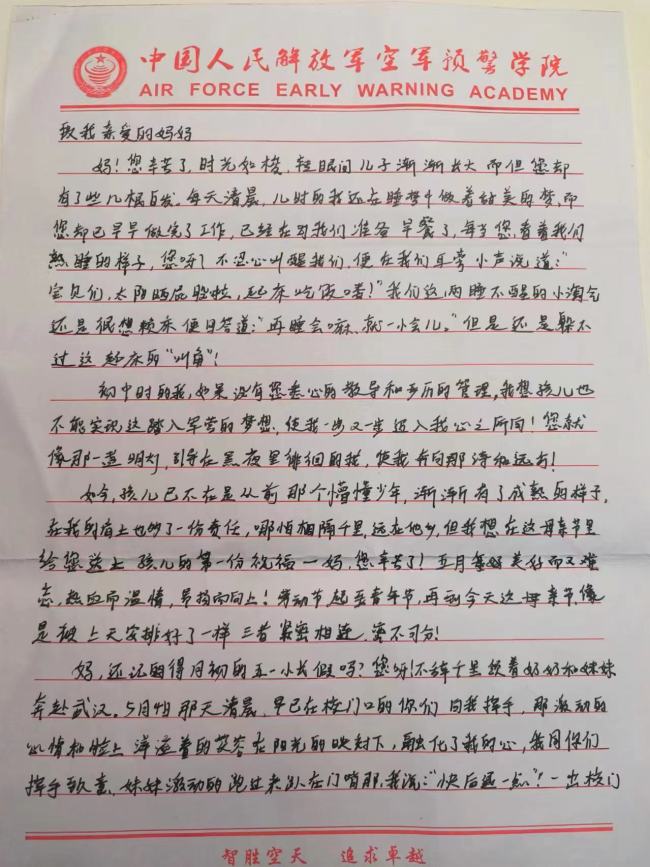 中国人民解放军空军预警学院
AIR FORCE EARLY WARNING ACADEMY
致我亲爱的妈妈
妈！您辛苦了，时光如梭，轻眼间儿子渐渐长大而但您却
有了些几根白发。每天清晨，儿时的我还在睡梦中做着甜美的梦，而
您却已早早做完了工作，已经在对我们准备早餐了，每当您看着我们
熟睡的样子，您呀！不忍心叫醒我们，便在我们耳旁小声说道："
宝贝们，太阳晒屁股啦，起床吃饭喽！"我们这两睡不醒的小淘气
还是很想赖床便回答道："再睡会嘛，就一小会儿。"但是还是躲不
过这起床的"叫角"！
初中时的我，如果没有您悉心的教导和严厉的管理，我想孩儿也
不能实现这踏入军营的梦想，使我一步又一步迈入我心之所向！您就
像那一道明灯，引导在黑夜里徘徊的我，使我奔向那诗和远方！
如今，孩儿已不在是从前那个懵懂少年，渐渐有了成熟的样子，
在我的肩上也多了一份责任，哪怕相隔千里，远在他乡，但我想在这母亲节里
给您送上孩儿的第一份祝福一妈，您辛苦了！五月美好而又难
忘，热血而温情，昂扬而向上！劳动节起至青年节，再到今天这母亲节，像
是被上天安排好了一样三者紧密相连，密不可分！
妈，还记的得月初的五一小长假吗？您呀！不辞千里领着奶奶和妹妹
奔赴武汉。5月 那天清晨，早已在校门口的你们向我挥手，那激动的
心情和脸上洋溢着的笑容在阳光的映衬下，融化了我的心，我同你们
挥手致意、妹妹激动的跑过来趴在门哨那，我说："快后退一点"！一出校门
智胜空天 追求卓越